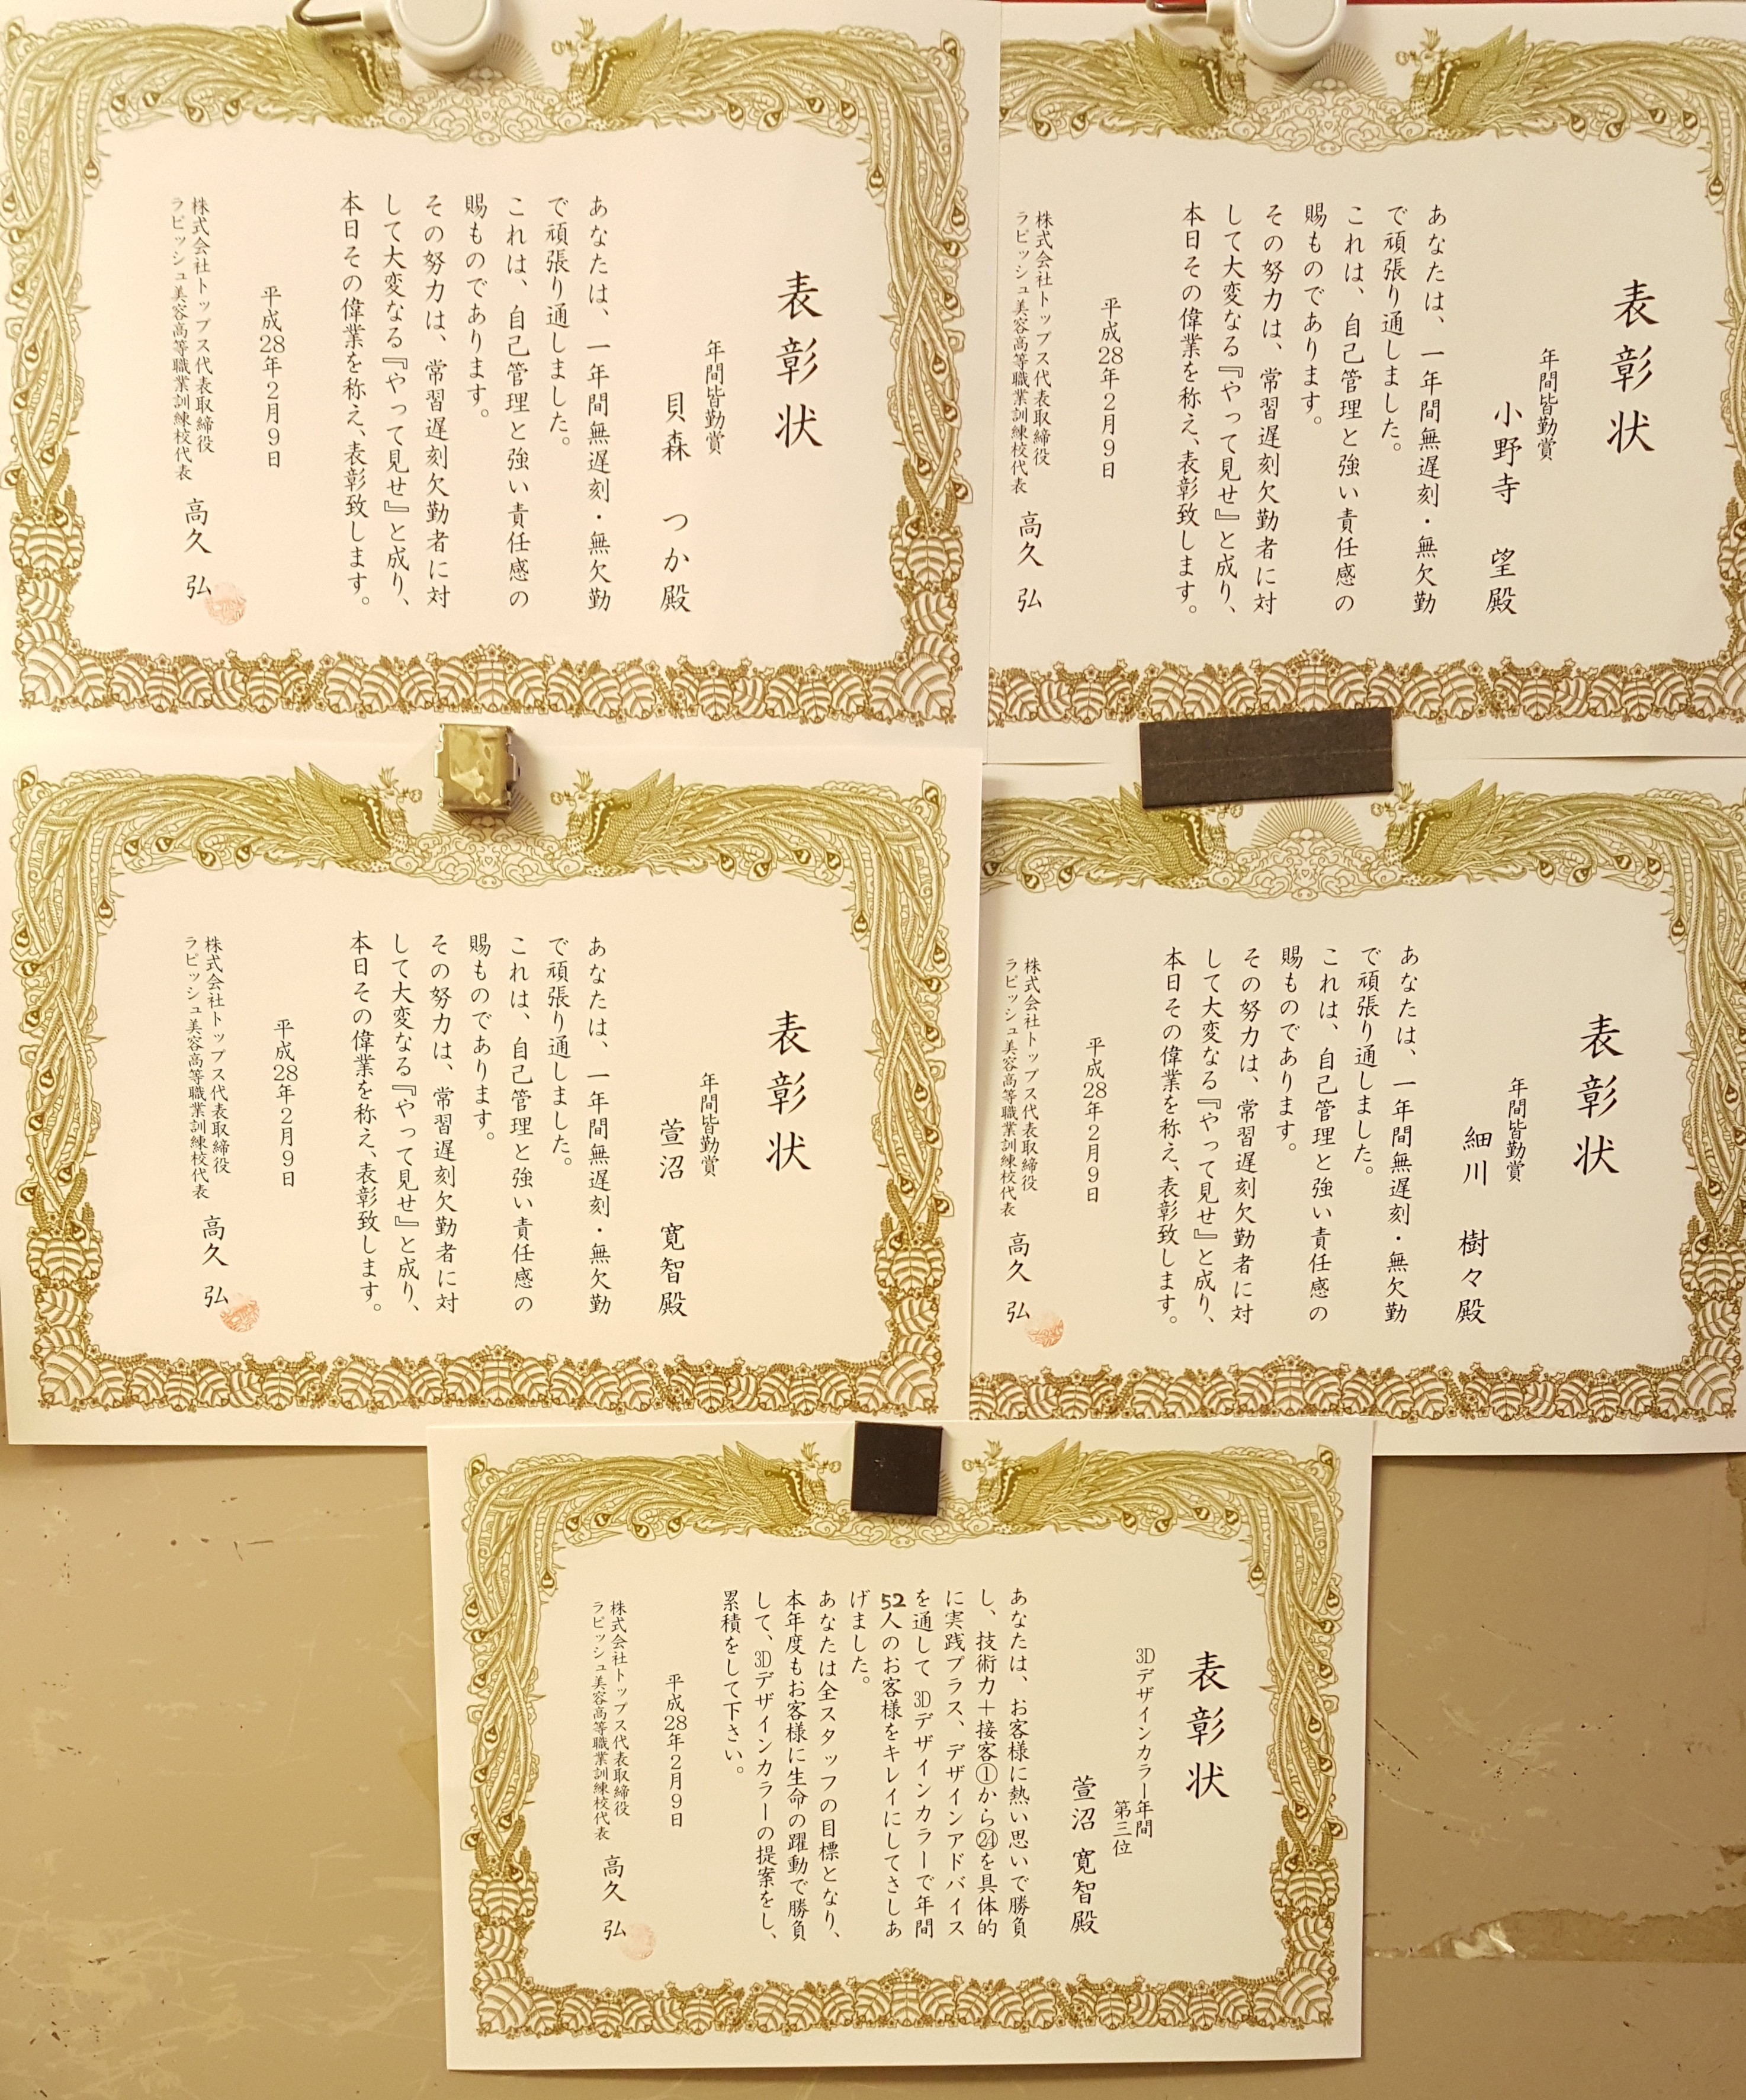 表彰状
年間皆勤賞
貝森 つか殿
あなたは、一年間無遅刻・無欠勤
で頑張り通しました。
これは、自己管理と強い責任感の
賜ものであります。
その努力は、常習遅刻欠勤者に対
して大変なる『やって見せ』と成り、
本日その偉業を称え、表彰致します。
平成28年2月9日
株式会社トップス代表取締役
ラピッシュ美容高等職業訓練校代表
高久 弘
表彰状
年間皆勤賞
小野寺 望殿
あなたは、一年間無遅刻・無欠勤
で頑張り通しました。
これは、自己管理と強い責任感の
賜ものであります。
その努力は、常習遅刻欠勤者に対
して大変なる『やって見せ』と成り、
本日その偉業を称え、表彰致します。
平成28年2月9日
株式会社トップス代表取締役
ラピッシュ美容高等職業訓練校代表
高久 弘
表彰状
年間皆勤賞
萱沼 寛智殿
あなたは、一年間無遅刻・無欠勤
で頑張り通しました。
これは、自己管理と強い責任感の
賜ものであります。
その努力は、常習遅刻欠勤者に対
して大変なる『やって見せ』と成り、
本日その偉業を称え、表彰致します。
平成28年2月9日
株式会社トップス代表取締役
ラピッシュ美容高等職業訓練校代表
高久 弘
表彰状
年間皆勤賞
細川 樹々殿
あなたは、一年間無遅刻・無欠勤
で頑張り通しました。
これは、自己管理と強い責任感の
賜ものであります。
その努力は、常習遅刻欠勤者に対
して大変なる『やって見せ』と成り、
本日その偉業を称え、表彰致します。
平成28年2月9日
株式会社トップス代表取締役
ラピッシュ美容高等職業訓練校代表
高久 弘
表彰状
3Dデザインカラー年間
第三位
萱沼 寛智殿
あなたは、お客様に熱い思いで勝負
し、技術力＋接客①から㉔を具体的
に実践プラス、デザインアドバイス
を通して3Dデザインカラーで年間
52人のお客様をキレイにしてさしあ
げました。
あなたは全スタッフの目標となり、
本年度もお客様に生命の躍動で勝負
して、3Dデザインカラーの提案をし、
累積をして下さい。
平成28年2月9日
株式会社トップス代表取締役
ラピッシュ美容高等職業訓練校代表
高久 弘